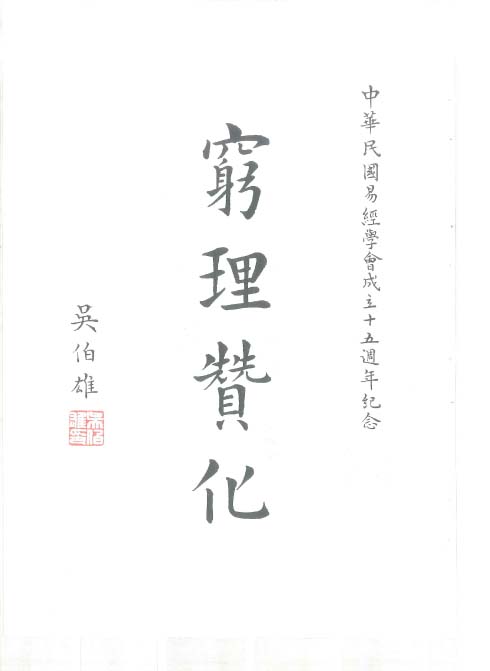 中華民國易經學會成立十五週年紀念
窮理贊化
吳伯雄